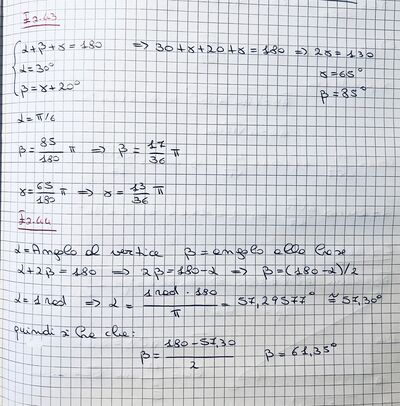 I2.43
α+β+γ=180 => 30+γ+20+γ=180 => 2γ=130
α=30° γ=65°
β=γ+20° β=85°
α=π/6
β=85/180 π => β=17/36 π
γ=65/180 π => γ=13/36 π
I2.44
α=Angolo al vertice β=angolo alla base
α+2β=180 => 2β=180-α => β=(180-α)/2
α=1 rad => α=1 rad·180/π=57,29577° ≅57,30°
quindi si ha che:
β=180-57,30/2 β=61,35°